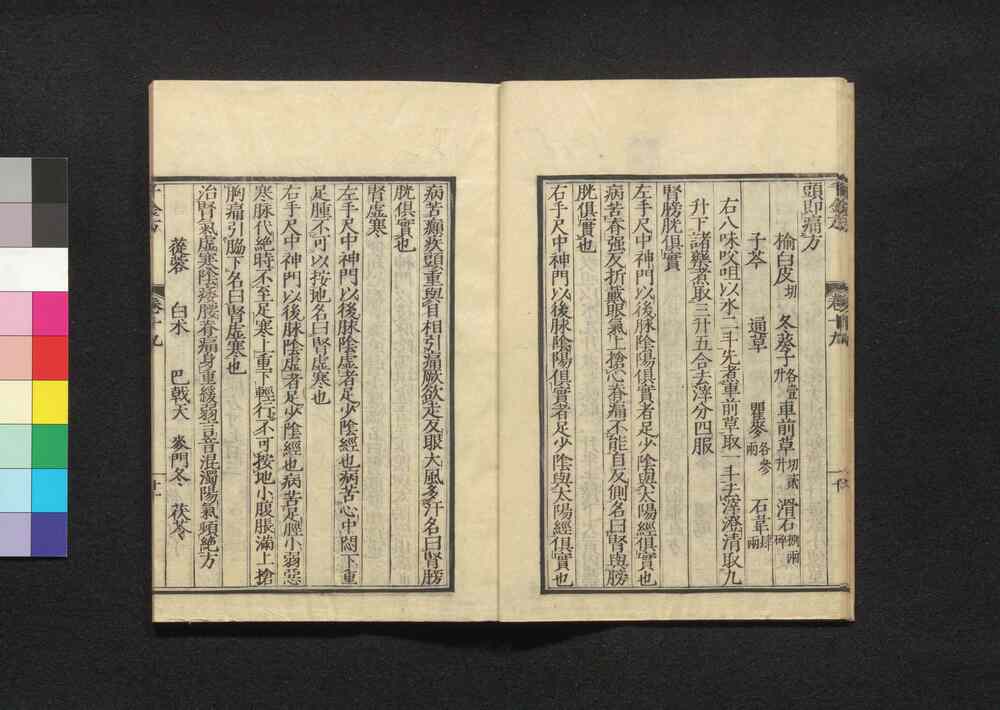 頭即痛方
榆白皮切 冬葵子各壹升 車前草切貳升 滑石捌兩碎
子芩 通草 瞿麥各參兩 石韋肆兩
右八味㕮咀以水二斗先煮車前草取一斗去滓澄清取九
升下諸藥煮取三升五合去滓分四服
腎膀胱俱實
左手尺中神門以後脉陰陽俱實者足少陰與太陽經俱實也
病苦脊强反折戴眼氣上搶心脊痛不能自反側名曰腎與膀
胱俱實也
右手尺中神門以後脉陰陽俱實者足少陰與太陽經俱實也
病苦癲疾頭重與目相引痛厥欲走反眼大風多汗名曰腎膀
胱俱實也
腎虛寒
左手尺中神門以後脉陰虛者足少陰經也病苦心中悶下重
足腫不可以按地名曰腎虛寒也
右手尺中神門以後脉陰虛者足少陰經也病苦足脛小弱惡
寒脉代絶時不至足寒上重下輕行不可按地小腹脹滿上搶
胸痛引脇下名曰腎虛寒也
治腎氣虛寒陰痿腰脊痛身重緩弱言音混濁陽氣頓絶方
蓯蓉 白朮 巴戟天 麥門冬 茯苓
卷十九